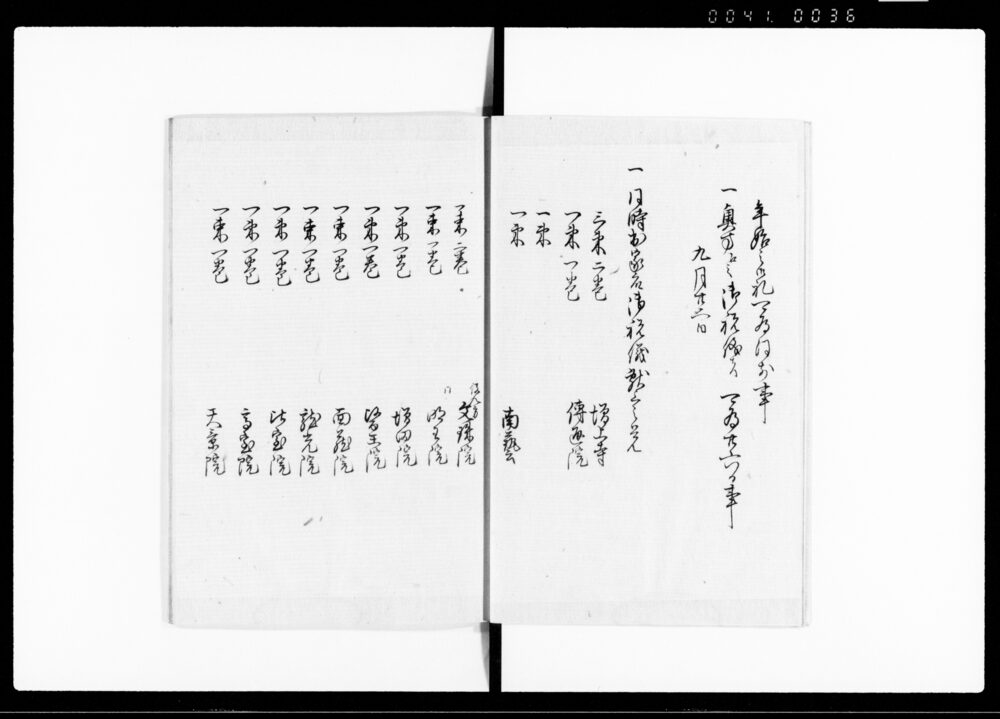 0041. 0036
年始之御礼可為同前事
一奥方江之御祝儀者可為廿六日事
九月廿六日
一同時出家江御祝儀献之覚
三束二巻 増上寺
一束一巻 傳通院
一束
一束 南藝
一束二巻 文殊院
一束一巻 明王院
一束一巻 増円院
一束一巻 醫王院
一束一巻 西蔵院
一束一巻 龍光院
一束一巻
一束一巻 高室院
一束一巻 天京院